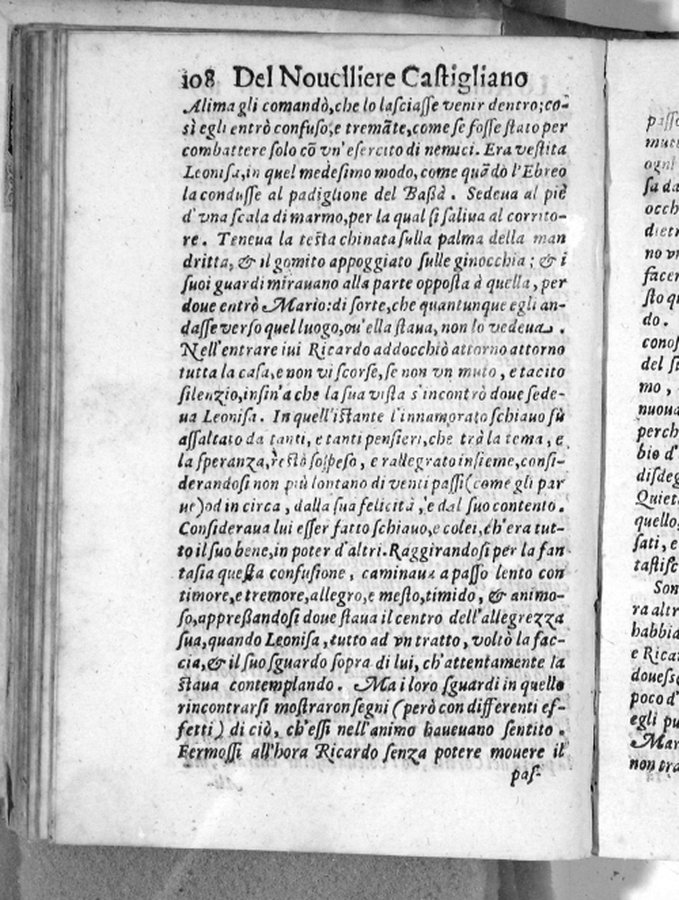 108 Del Nouelliere Castigliano
Alima gli comandò, che lo lasciasse venir dentro; co-
sì egli entrò confuso, e tremãte, come se fosse stato per
combattere solo cõ vn'esercito di nemici. Era vestita
Leonisa, in quel medesimo modo, come quãdo l'Ebreo
la condusse al padiglione del Bassà. Sedeua al piè
d'vna scala di marmo, per la qual si saliua al corrito-
re. Teneua la testa chinata sulla palma della man
dritta, & il gomito appoggiato sulle ginocchia; & i
suoi guardi mirauano alla parte opposta à quella, per
doue entrò Mario: di sorte, che quantunque egli an-
dasse verso quel luogo, ou'ella staua, non lo vedeua.
Nell'entrare iui Ricardo addocchiò attorno attorno
tutta la casa, e non vi scorse, se non vn muto, e tacito
silenzio, insin'a che la sua vista s'incontrò doue sede-
ua Leonisa. In quell'istante l'innamorato schiauo fù
assaltato da tanti, e tanti pensieri, che trà la tema, e
la speranza, restò sospeso, e rallegrato insieme, consi-
derandosi non più lontano di venti passi (come gli par
ue) od in circa, dalla sua felicità, e dal suo contento.
Consideraua lui esser fatto schiauo, e colei, ch'era tut-
to il suo bene, in poter d'altri. Raggirandosi per la fan
tasia questa confusione, caminaua a passo lento con
timore, e tremore, allegro, e mesto, timido, & animo-
so, appreßandosi doue staua il centro dell'allegrezza
sua, quando Leonisa, tutto ad vn tratto, voltò la fac-
cia, & il suo sguardo sopra di lui, ch'attentamente la
staua contemplando. Ma i loro sguardi in quello
rincontrarsi mostraron segni (però con differenti ef-
fetti) di ciò, ch'essi nell'animo haueuano sentito.
Fermossi all'hora Ricardo senza potere mouere il
pas-
passo
mut
ogni
sa da
occh
dietr
no vn
facer
sto qu
do.
conos
del si
mo,
nuoua
perch
bio d'
disdeg
Quiet
quello,
sati, e
tastisc
Son
ra altr
habbia
e Rica
douess
poco d'
egli pu
Mar
non tra